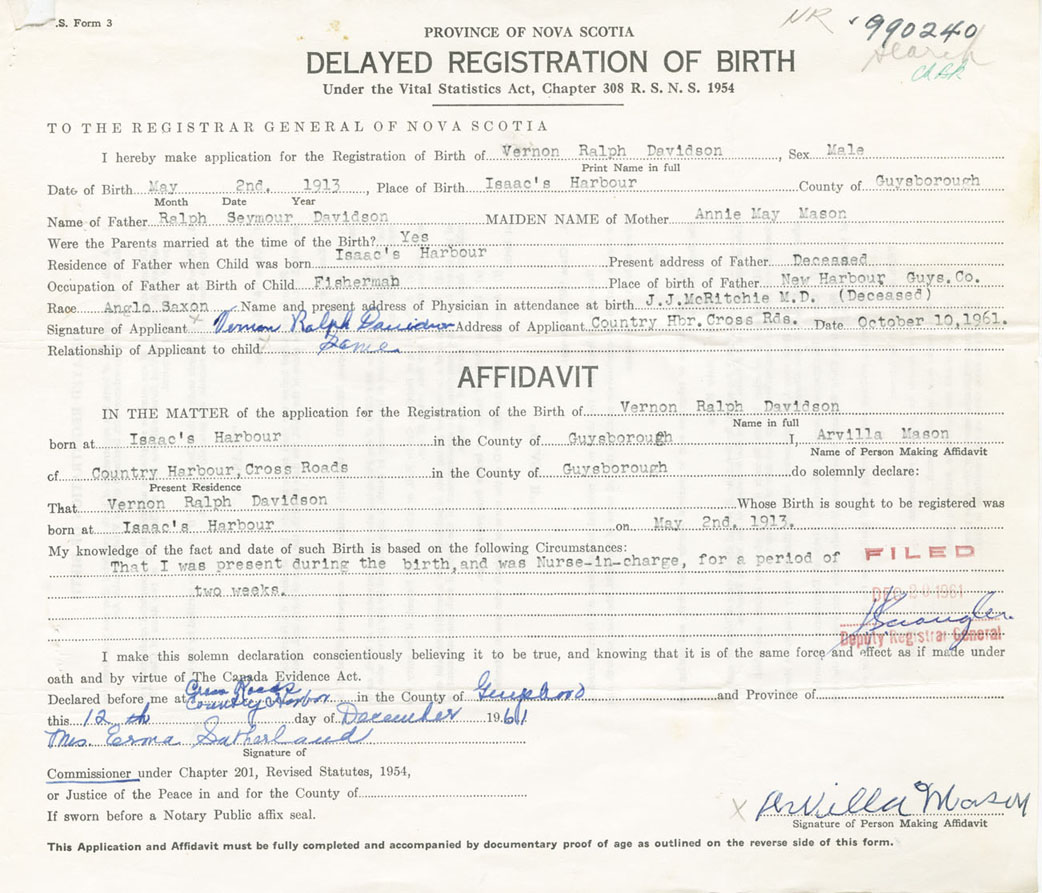 .S. Form 3
NR 990240
PROVINCE OF NOVA SCOTIA
Search
DELAYED REGISTRATION OF BIRTH
Under the Vital Statistics Act, Chapter 308 R. S. N. S. 1954
TO THE REGISTRAR GENERAL OF NOVA SCOTIA
I hereby make application for the Registration of Birth of Vernon Ralph Davidson, Sex Male
Print Name in full
Date of Birth May 2nd. 1913, Place of Birth Isaac's Harbour County of Guysborough
Month Date Year
Name of Father Ralph Seymour Davidson MAIDEN NAME of Mother Annie May Mason
Were the Parents married at the time of the Birth? Yes
Residence of Father when Child was born Isaac's Harbour Present address of Father Deceased
Occupation of Father at Birth of Child Fisherman Place of birth of Father New Harbour Guys. Co.
Race Anglo Saxon Name and present address of Physician in attendance at birth J.J.McRitchie M.D. (Deceased)
Signature of Applicant x Vernon Ralph Davidson Address of Applicant Country Hbr. Cross Rds. Date October 10, 1961.
Relationship of Applicant to child Same
AFFIDAVIT
IN THE MATTER of the application for the Registration of the Birth of Vernon Ralph Davidson
Name in full
born at Isaac's Harbour in the County of Guysborough I, Arvilla Mason
Name of Person Making Affidavit
of Country Harbour, Cross Roads in the County of Guysborough do solemnly declare:
Present Residence
That Vernon Ralph Davidson Whose Birth is sought to be registered was
born at Isaac's Harbour on May 2nd. 1913.
My knowledge of the fact and date of such Birth is based on the following Circumstances:
That I was present during the birth, and was Nurse-in-charge, for a period of
FILED
two weeks.
DEC 20 1961
Deputy Registrar General
I make this solemn declaration conscientiously believing it to be true, and knowing that it is of the same force and effect as if made under
oath and by virtue of The Canada Evidence Act.
Declared before me at Cross Roads Country Harbor in the County of and Province of
this 12 th day of December 1961
Mrs. Erma Sutherland
Signature of
Commissioner under Chapter 201, Revised Statutes, 1954,
or Justice of the Peace in and for the County of
If sworn before a Notary Public affix seal.
x Arvilla Mason
Signature of Person Making Affidavit
This Application and Affidavit must be fully completed and accompanied by documentary proof of age as outlined on the reverse side of this form.